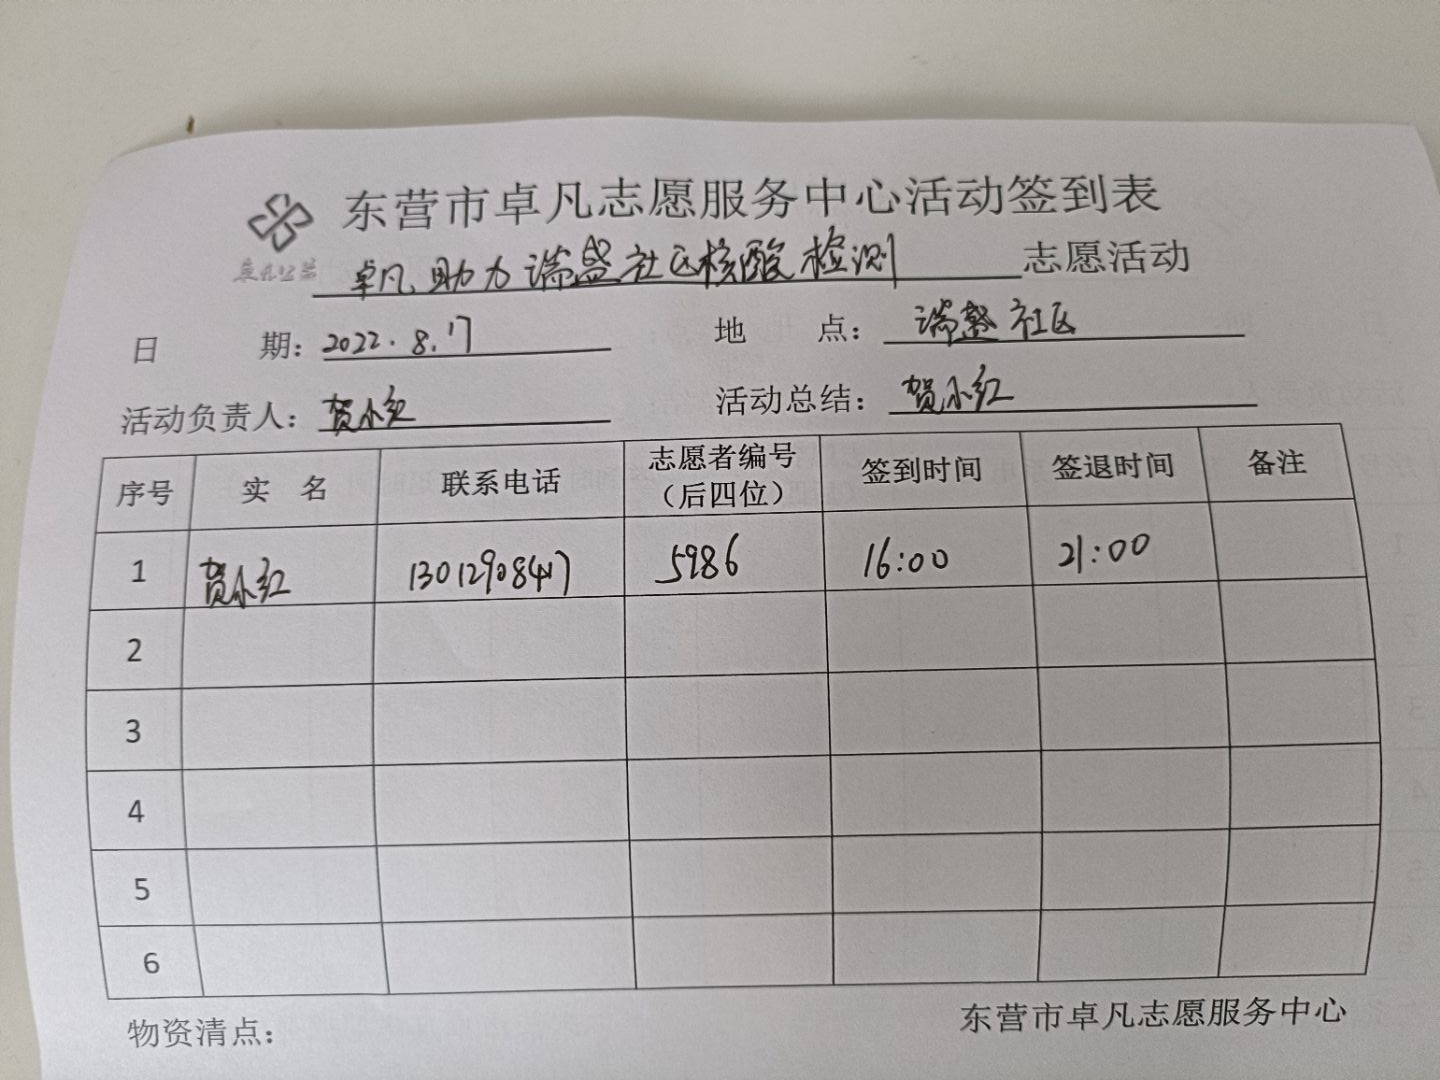 东营市卓凡志愿服务中心活动签到表
卓凡公益
卓凡助力瑞盛社区核酸检测 志愿活动
日 期：2022.8.17 地 点：瑞盛社区
活动负责人：贺小红 活动总结：贺小红
序号 实 名 联系电话 志愿者编号（后四位） 签到时间 签退时间 备注
1 贺小红 13012908417 5986 16:00 21:00
2
3
4
5
6
物资清点： 东营市卓凡志愿服务中心